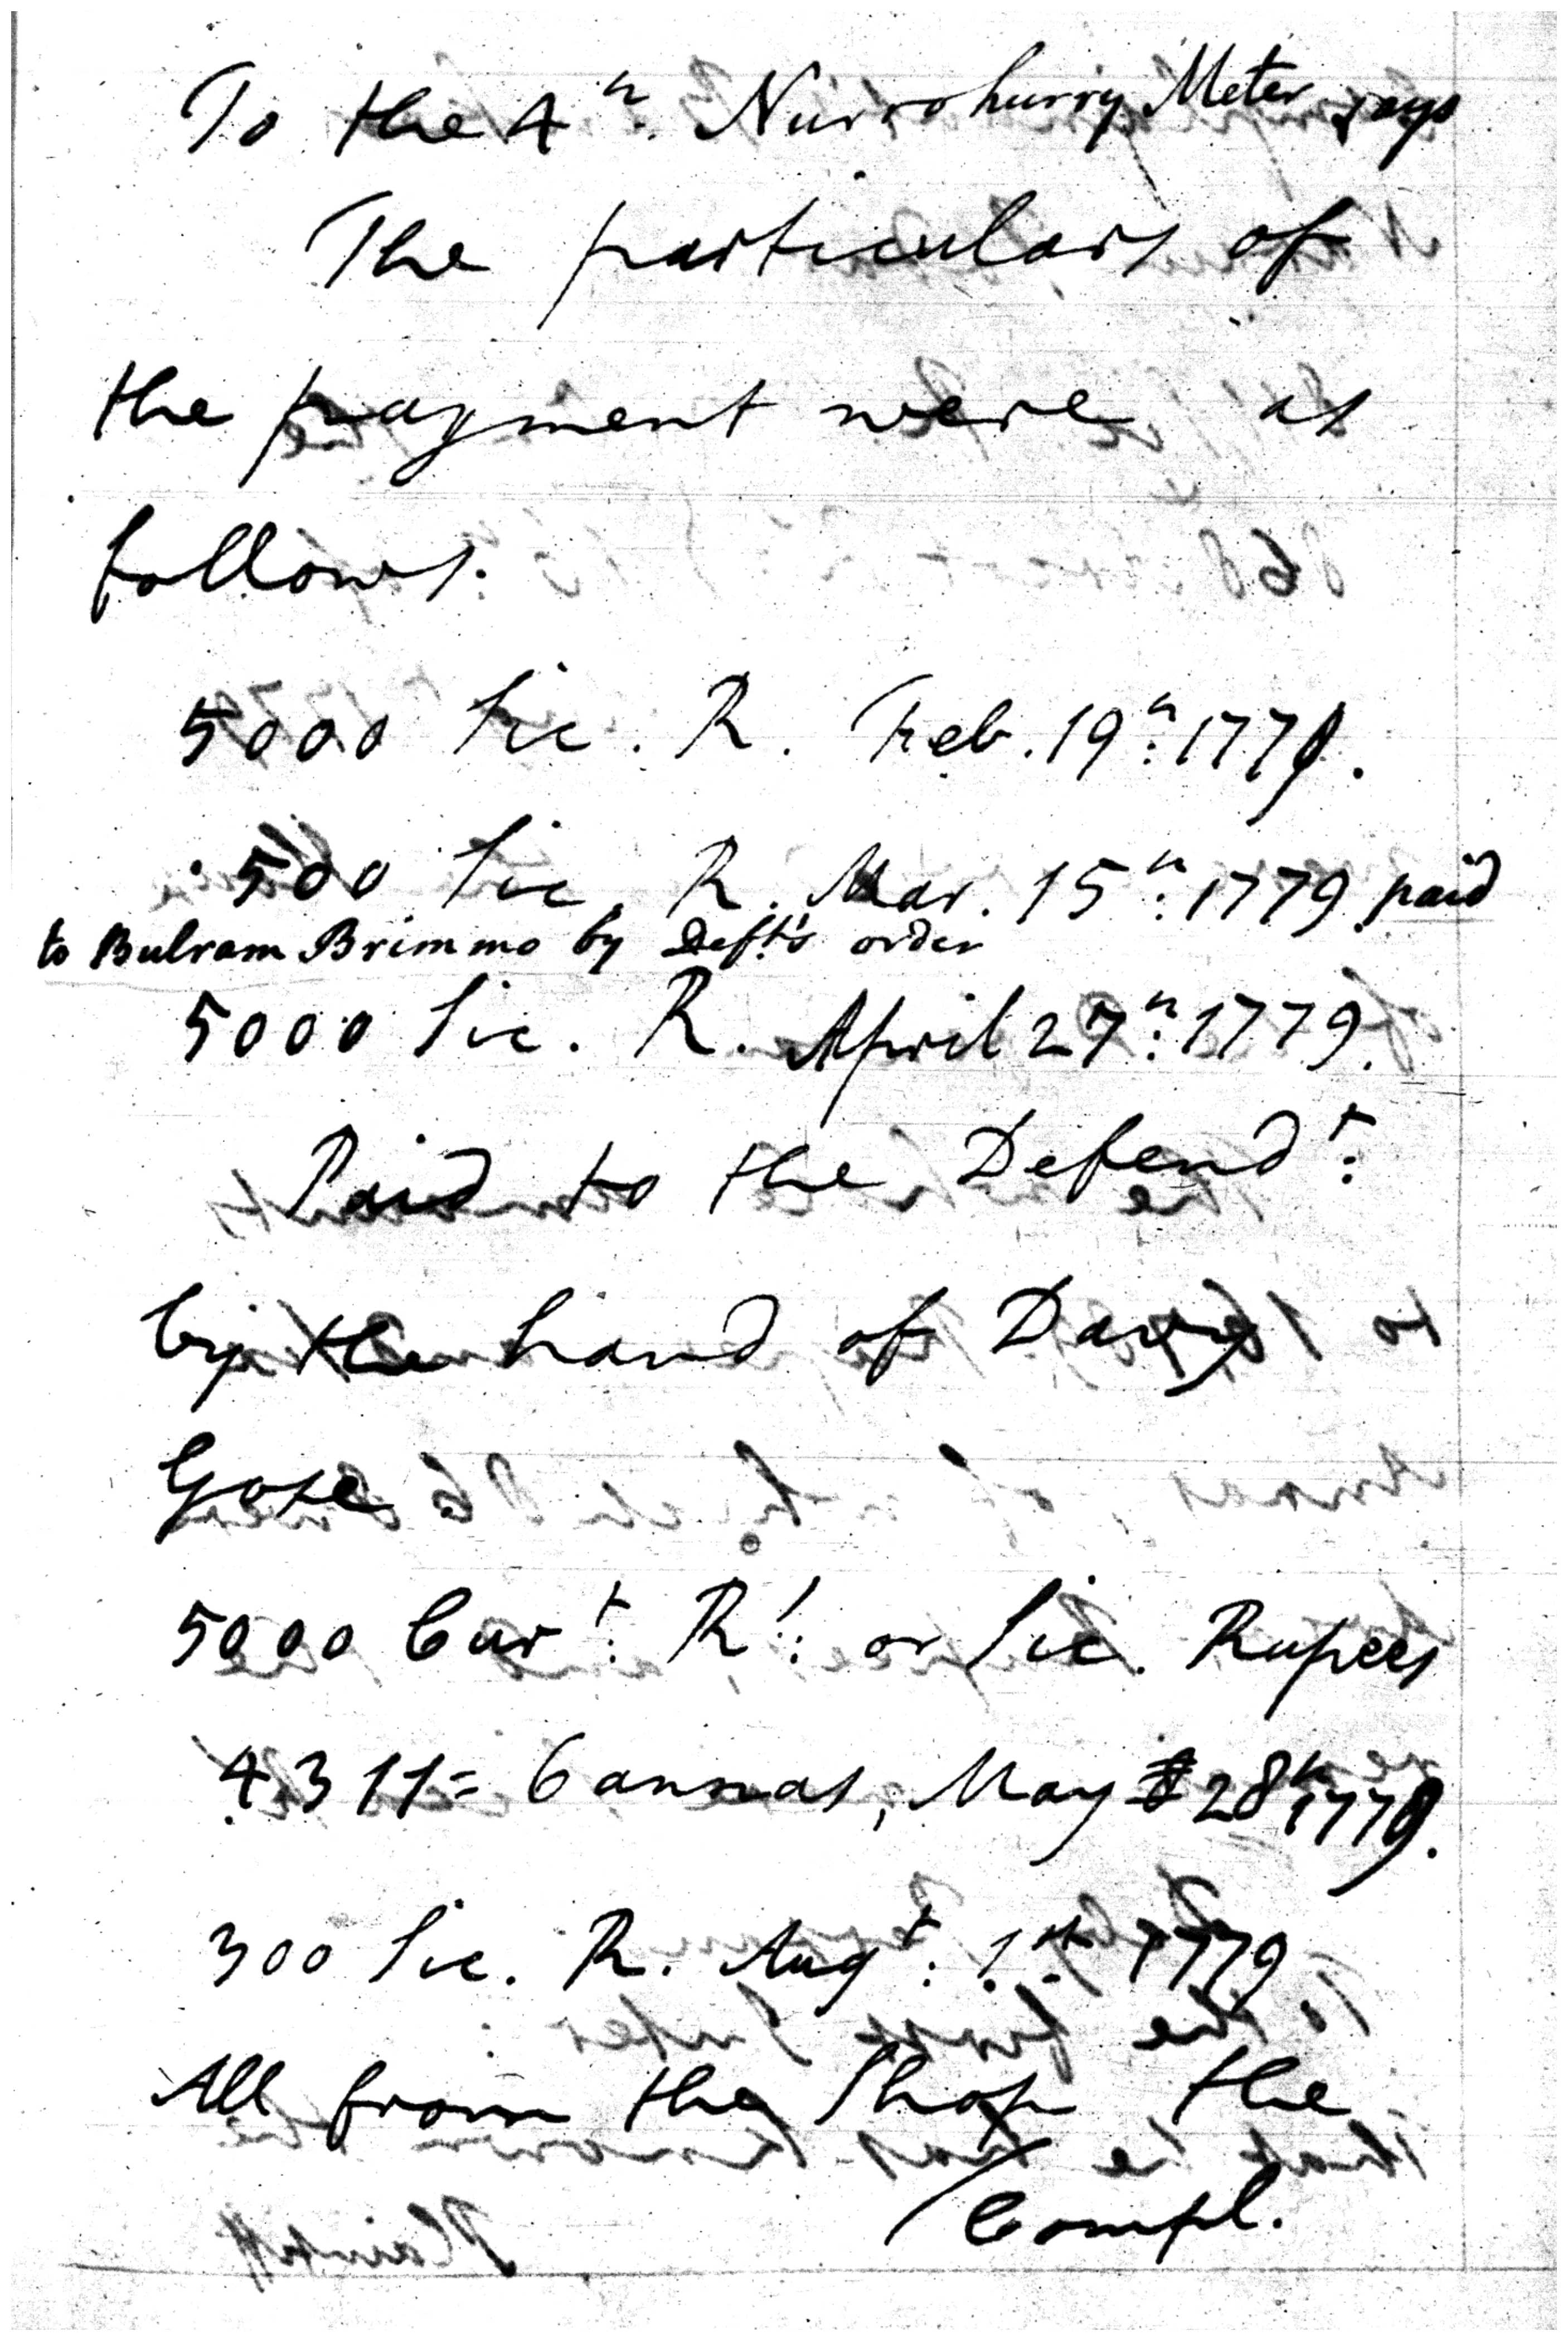 To the 4th. Nurrohurry Meter says
The particulars of
the payment were as
follows:
5000 Sic. R. Feb. 19th: 1779.
500 Sic. R. Mar. 15th: 1779 paid
to Bulram Brimmo by Deft's order
5000 Sic. R. April 27th: 1779.
Paid to the Defendt:
by the hand of Davy
Gose
5000 Curt: Rs: or Sic. Rupees
4311 = 6 annas, May 28th 1779.
300 Sic. R. Augt: 1st. 1779
All from the Shop the
Compl.